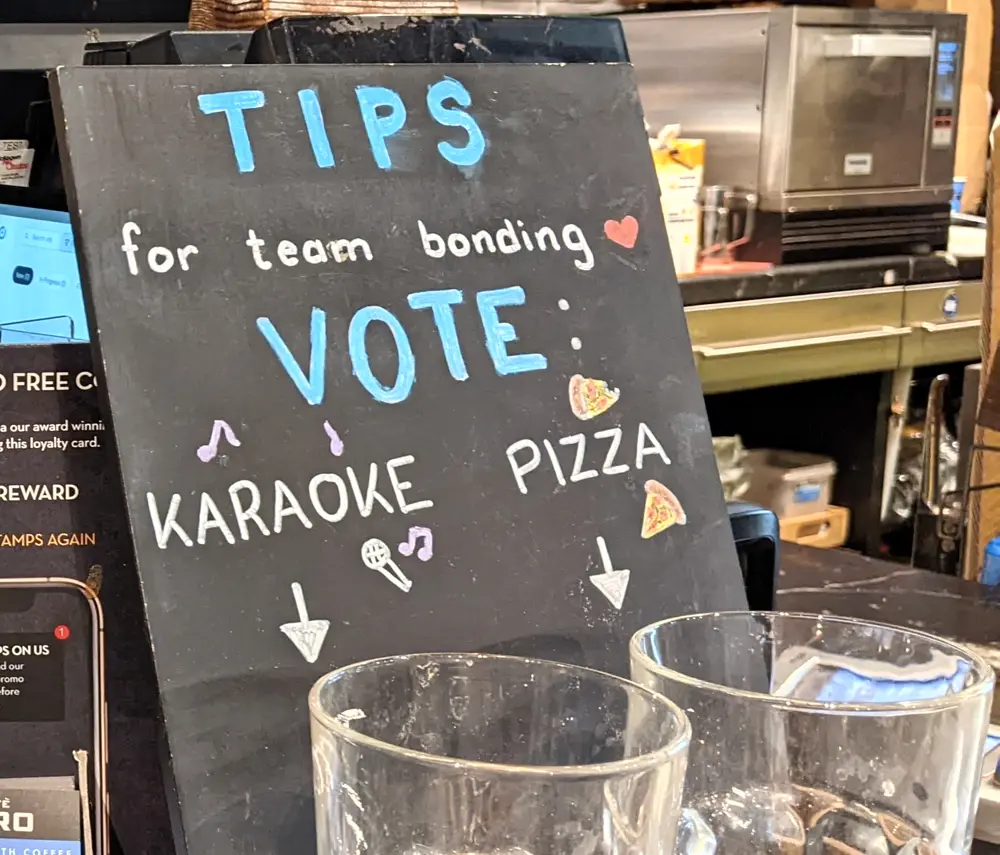 TIPS
for team bonding
VOTE:
KARAOKE
PIZZA
FREE
a our award
g this loyalty card.
REWARD
AMPS AGAIN
1
PS ON US
d our
romo
efore
RO
TH COFFEE